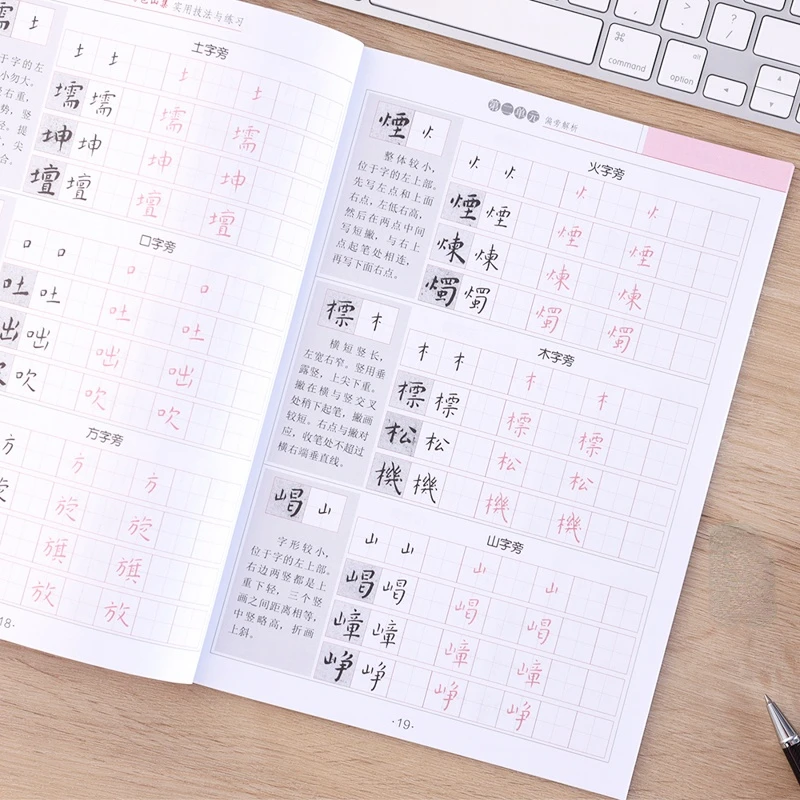 实用技法与练习
土
土字旁
土 土 土 土
壖 壖 壖 壖
坤 坤 坤 坤
壇 壇 壇 壇
口字旁
口 口 口 口
吐 吐 吐 吐
咄 咄 咄 咄
吹 吹 吹
方字旁
方 方 方
旋 旋
旗 旗
放 放
18·
第二单元 偏旁解析
煙 火
整体较小，
位于字的左上部。
先写左点和上面
右点，左低右高，
然后在两点中间
写短撇，与右上
点起笔处相连，
再写下面右点。
火字旁
火 火 火 火
煙 煙 煙 煙
煉 煉 煉 煉
燭 燭 燭 燭
標 木
横短竖长，
左宽右窄。竖用垂
露竖，上尖下重。
撇在横与竖交叉
处稍下起笔，撇画
较短。右点与撇对
应，收笔处不超过
横右端垂直线。
木字旁
木 木 木 木
標 標 標 標
松 松 松 松
機 機 機 機
山
字形较小，
位于字的左上部。
右边两竖都是上
重下轻，三个竖
画之间距离相等，
中竖略高，折画
上斜。
山字旁
山 山 山 山
嶂 嶂 嶂 嶂
崢 崢 崢 崢
·19·
command
option